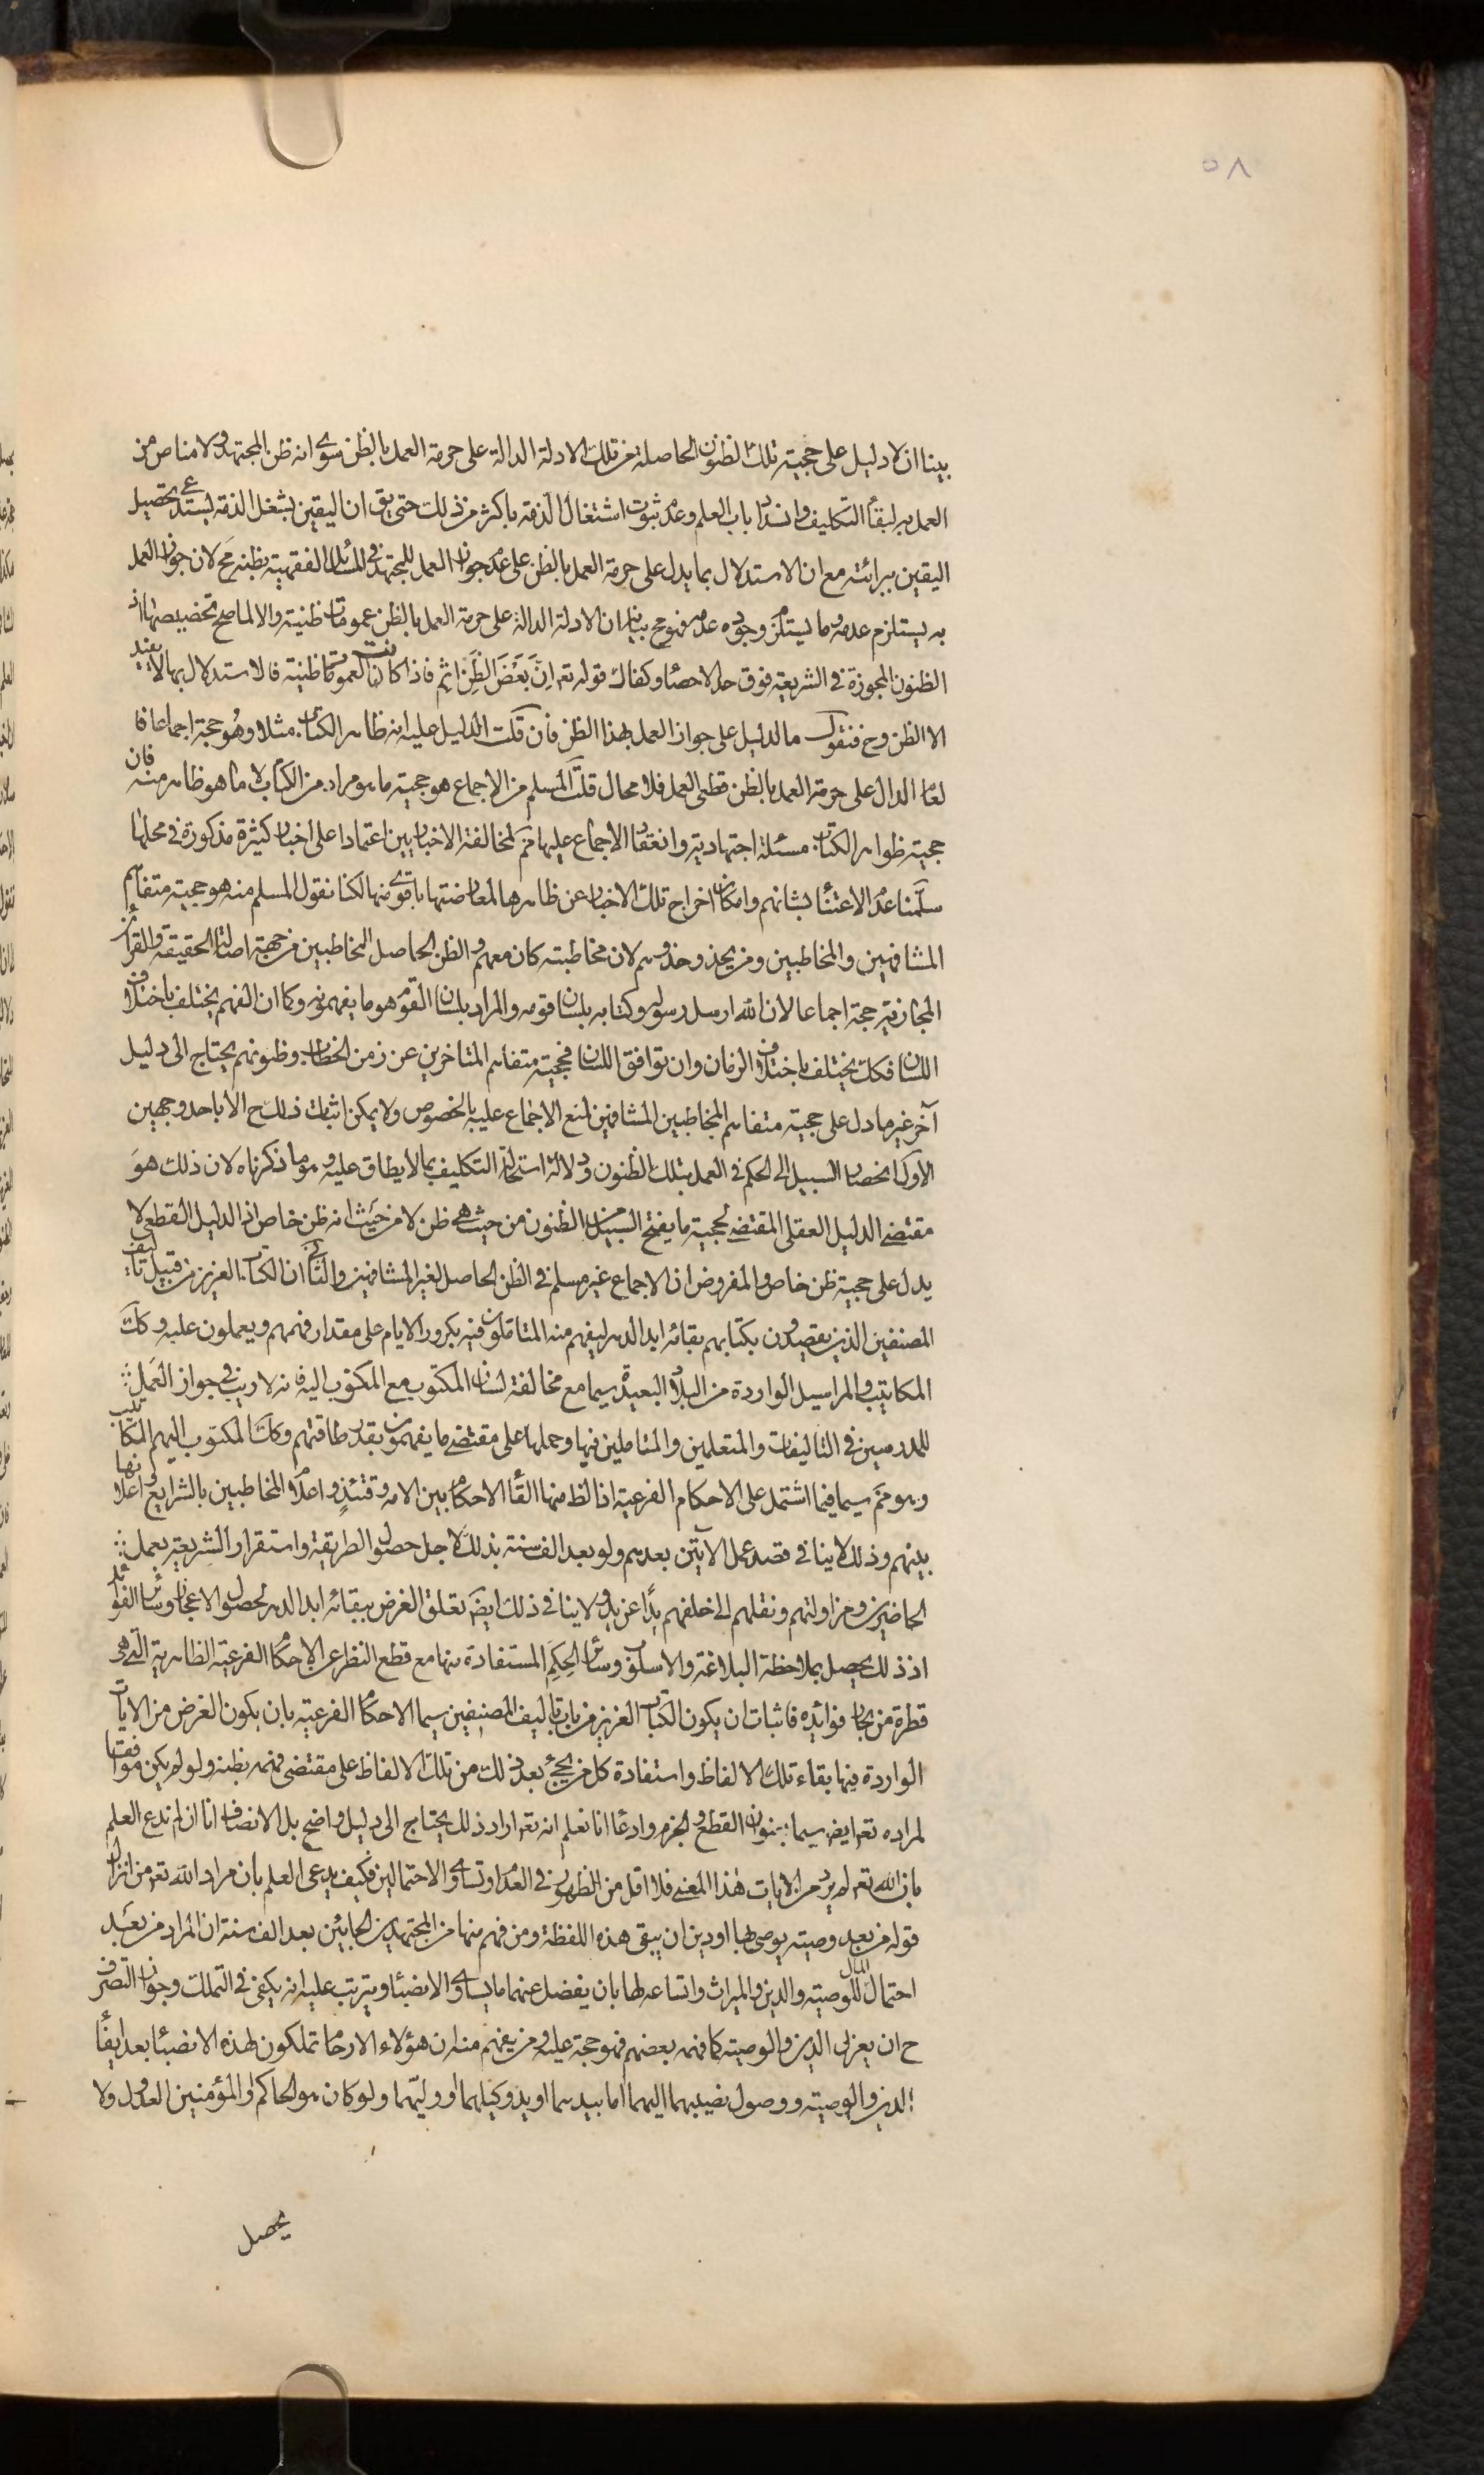 ٥٨
بينا ان لا دليل على حجية تلك الظنون الحاصلة من تلك الادلة الدالة على حرمة العمل بالظن سوى انه ظن المجتهد ولا مناص من
العمل به لبقاء التكليف وانسداد باب العلم وعدم ثبوت اشتغال الذمة باكثر من ذلك حتى يق ان اليقين بشغل الذمة يستدعى تحصيل
اليقين ببرائته مع ان الاستدلال بما يدل على حرمة العمل بالظن على عدم جواز العمل للمجتهد فى المسائل الفقهية بظنه مح لان جواز العمل
به يستلزم عدمه وما يستلزم وجوده عدمه فهو مح بيانه ان الادلة الدالة على حرمة العمل بالظن عمومات ظنية والا لما صح تخصيصها اذ
الظنون المجوزة فى الشريعة فوق حد الاحصاء وكفاك قوله تع ان بعض الظن اثم فاذا كانت العمومات ظنية فالاستدلال بها لا يفيد
الا الظن وح فنقول ما الدليل على جواز العمل بهذا الظن فان قلت الدليل عليه انه ظاهر الكتاب مثلا وهو حجة اجماعا فا
لعام الدال على حرمة العمل بالظن قطعى العمل فلا محال قلت المسلم من الاجماع هو حجية ما هو مراد من الكتاب لا ما هو ظاهر منه فان
حجية ظواهر الكتاب مسئلة اجتهادية وانعقاد الاجماع عليها مم لمخالفة الاخباريين اعتمادا على اخبار كثيرة مذكورة فى محلها
سلمنا عدم الاعتناء بشانهم وامكان اخراج تلك الاخبار عن ظاهرها لمعارضتها باقوى منها لكنا نقول المسلم منه هو حجية متفاهم
المشافهين والمخاطبين ومن يحذو حذوهم لان مخاطبته كان معهم والظن الحاصل للمخاطبين من جهة اصالة الحقيقة والقرائن
المجازية حجة اجماعا لان الله ارسل رسوله وكتابه بلسان قومه والمراد بلسان القوم هو ما يفهمونه وكما ان الفهم يختلف باختلاف
اللسان فكك يختلف باختلاف الزمان وان توافق اللسان فحجية متفاهم المتاخرين عن زمن الخطاب وظنونهم يحتاج الى دليل
آخر غير ما دل على حجية متفاهم المخاطبين المشافهين لمنع الاجماع عليه بالخصوص ولا يمكن اثبات ذلك ح الا باحد وجهين
الاول انحصار السبيل الى الحكم فى العمل بتلك الظنون ودلالة استحالة التكليف بما لا يطاق عليه وهو ما ذكرناه لان ذلك هو
مقتضى الدليل العقلى المقتضى لحجية ما يفتح السبيل من الظنون من حيث هى ظن لا من حيث انه ظن خاص اذ الدليل القطعى لا
يدل على حجية ظن خاص والمفروض ان الاجماع غير مسلم فى الظن الحاصل لغير المشافهين والثانى ان الكتاب العزيز من قبيل تاليف
المصنفين الذين يقصدون بكتابهم بقائه ابد الدهر ليفهم منه المتاملون فيه بكرور الايام على مقدار فهمهم ويعملون عليه وكك
المكاتيب والمراسيل الواردة من البلاد البعيدة سيما مع مخالفة لسان المكتوب مع المكتوب اليه فانه لا ريب فى جواز العمل
للمدرسين فى التاليفات والمتعلمين والمتاملين فيها وحملها على مقتضى ما يفهمون بقدر طاقتهم وكك المكتوب اليهم المكاتيب
وهو مم سيما فيما اشتمل على الاحكام الفرعية اذ الظ منها القاء الاحكام بين الامة وقتئذ واعلام المخاطبين بالشرايع واعلانها
بينهم وذلك لا ينافى قصد عمل الآتين بعدهم ولو بعد الف سنة بذلك لاجل حصول الطريقة واستقرار الشريعة بعمل
الحاضرين ومزاولتهم ونقلهم الى خلفهم يدا عن يد ولا ينافى ذلك ايض تعلق الغرض ببقائه ابد الدهر لحصول الاعجاز وسائر الفوائد
اذ ذلك يحصل بملاحظة البلاغة والاسلوب وسائر الحكم المستفادة منها مع قطع النظر عن الاحكام الفرعية الظاهرية التى هى
قطرة من بحار فوائده فاثبات ان يكون الكتاب العزيز من باب تاليف المصنفين سيما الاحكام الفرعية بان يكون الغرض من الايات
الواردة فيها بقاء تلك الالفاظ واستفادة كل من يجئ بعد ذلك من تلك الالفاظ على مقتضى فهمه بظنه ولو لم يكن موافقا
لمراده تع ايض سيما بعنوان القطع والجزم وادعاء انا نعلم انه تع اراد ذلك يحتاج الى دليل واضح بل الانصاف انا ان لم ندع العلم
بان الله تع لم يرد من الايات هذا المعنى فلا اقل من الظهور فى العدم او تساوى الاحتمالين فكيف يدعى العلم بان مراد الله تع من انزال
قوله من بعد وصية يوصى بها او دين ان يبقى هذه اللفظة ومن فهم منها من المجتهدين الجائين بعد الف سنة ان المراد من بعد
احتمال المال للوصية والدين والميراث واتساعه لها بان يفضل عنهما ما يساوى الانصباء ويترتب عليه انه يكفى فى التملك وجواز التصرف
ح ان يعزل الدين والوصية كما فهمه بعضهم فهو حجة عليه ومن يفهم منه ان هؤلاء الارحام تملكون لهذه الانصباء بعد ايفاء
الدين والوصية ووصول نصيبهما اليهما اما بيدهما او يد وكيلهما او وليهما ولو كان هو الحاكم او المؤمنين العدول ولا
يحصل